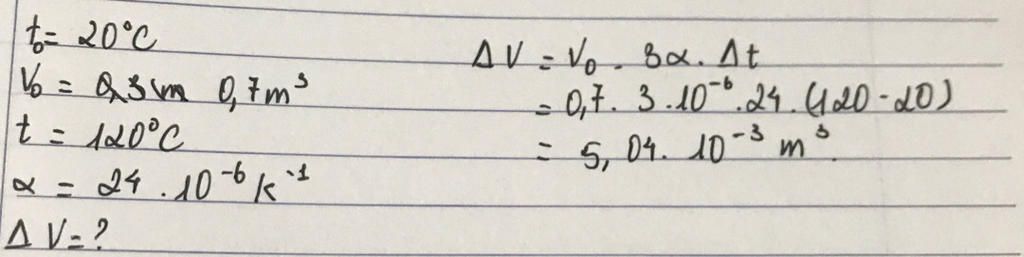 t₀ = 20°C
V₀ = 0,7m³
t = 120°C
α = 24 . 10⁻⁶ K⁻¹
ΔV = ?
ΔV = V₀ . 3α . Δt
= 0,7 . 3 . 10⁻⁶ . 24 . (120 - 20)
= 5,04 . 10⁻³ m³.